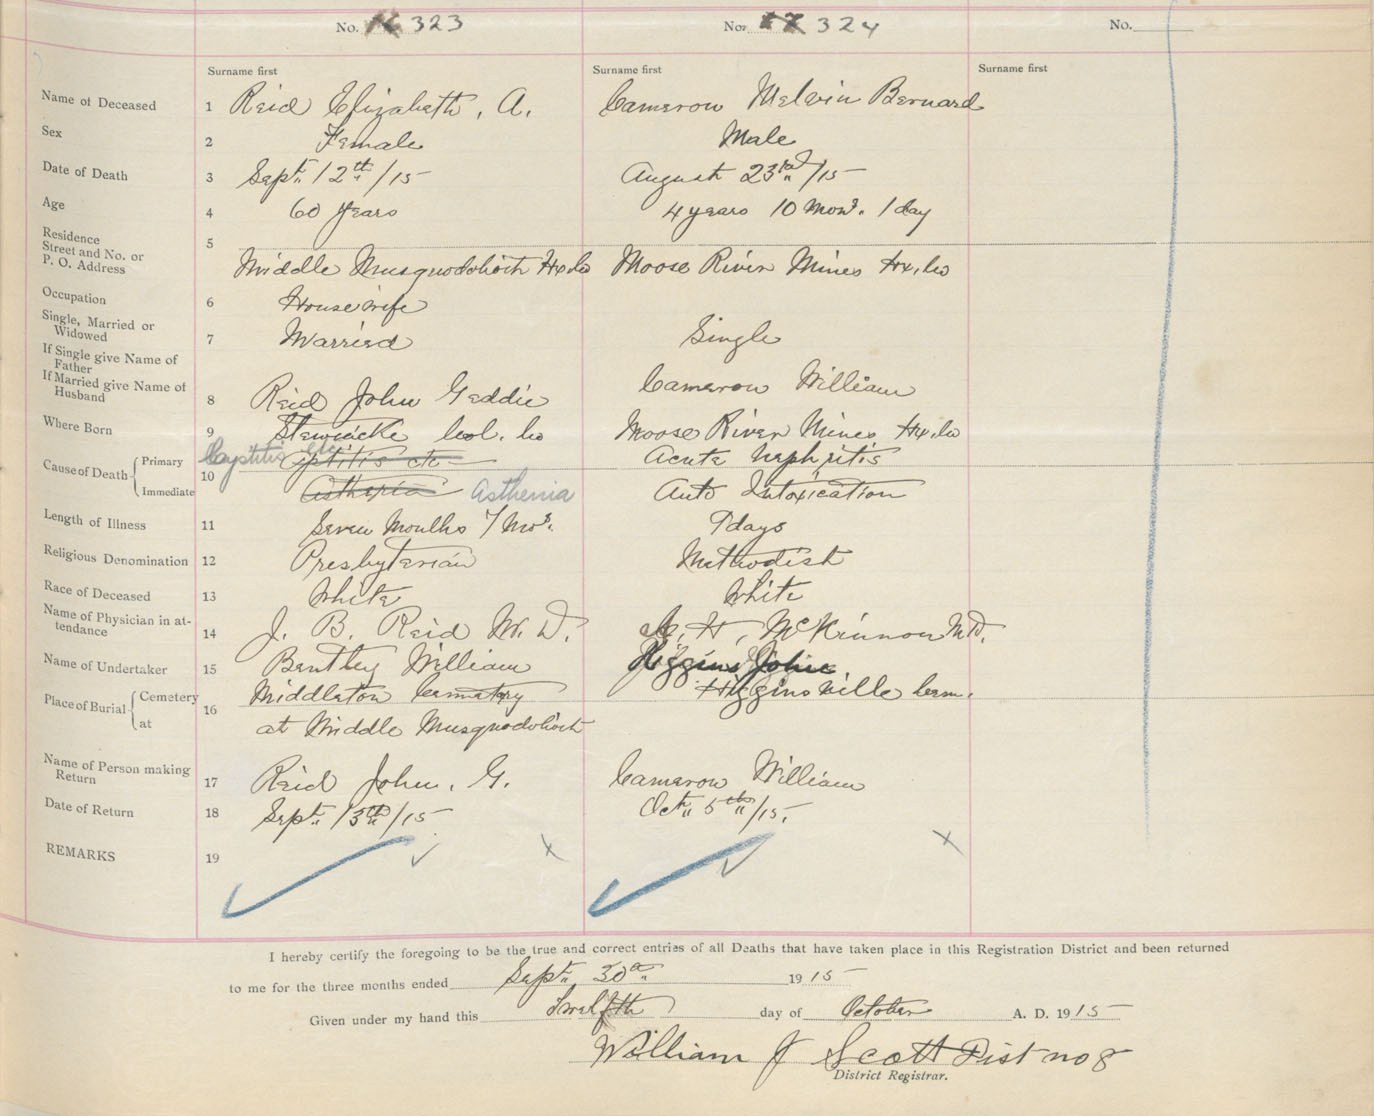 No. 323 No. 324 No.
Surname first Surname first Surname first
Name of Deceased 1 Reid Elizabeth, A. Cameron Melvin Bernard
Sex 2 Female Male
Date of Death 3 Sept. 12th /15 August 23rd /15
Age 4 60 years 4 years 10 Mons. 1 day
Residence
Street and No. or
P. O. Address
5 Middle Musquodoboit Hx. Co Moose River Mines Hx. Co
Occupation 6 Housewife
Single, Married or
Widowed
7 Married Single
If Single give Name of
Father
If Married give Name of
Husband
8 Reid John Geddie Cameron William
Where Born 9 Stewiacke Col. Co Moose River Mines Hx. Co
Cause of Death Primary Immediate 10
Cystitis etc Cystitis etc Acute Nephritis
Asthenia Asthenia Auto Intoxication
Length of Illness 11 Seven Months 7 Mos. 9 days
Religious Denomination 12 Presbyterian Methodist
Race of Deceased 13 White White
Name of Physician in at-
tendance
14 J. B. Reid M. D. H. McKinnon M.D.
Name of Undertaker 15 Bentley William Higgins John
Place of Burial Cemetery at 16
Middleton Cematery Higginsville Cem.
at Middle Musquodoboit
Name of Person making
Return
17 Reid John. G. Cameron William
Date of Return 18 Sept. 13th /15 Oct. 5th /15.
REMARKS 19
I hereby certify the foregoing to be the true and correct entries of all Deaths that have taken place in this Registration District and been returned
to me for the three months ended Sept. 30th 1915
Given under my hand this Twelfth day of October A. D. 1915
William J Scott Dist no 8
District Registrar.